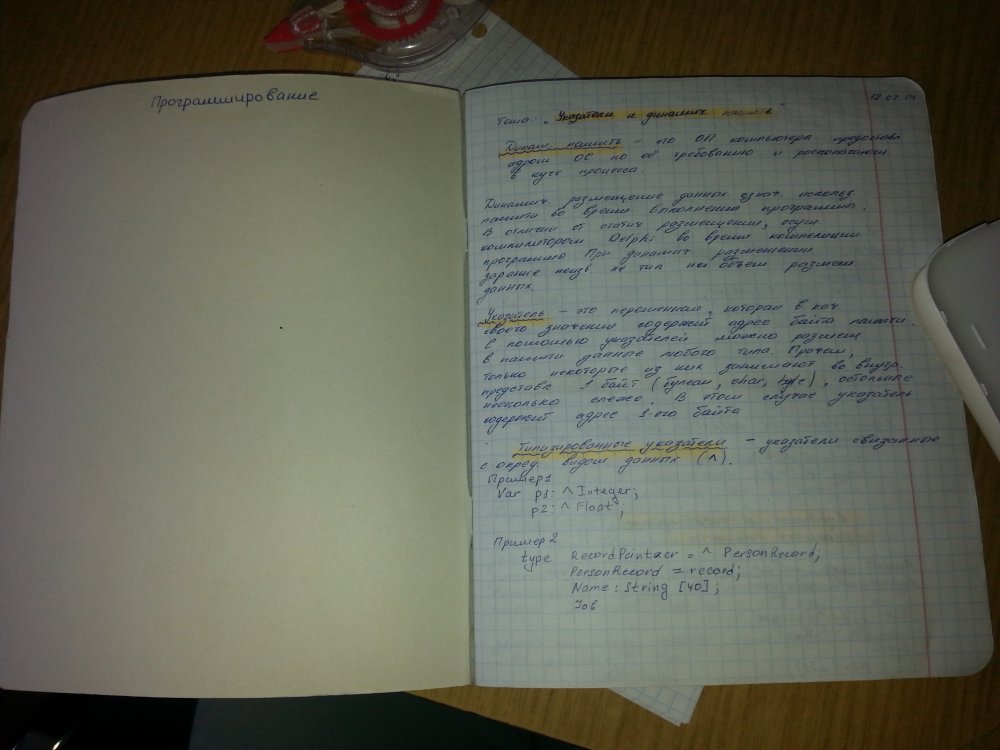 Программирование
12 02 14
Тема: „Указатели и динамич память"
Динам. память - это ОП компьютера предостав
ядром ОС по её требованию и
в куче процесса.
Динамич. размещение данных означ использ
памяти во время выполнения программы.
В отличии от статич размещения, осущ
компилятором Delphi во время компеляции
программы При динамич размещении
зарание неизв не тип не объем размещ
данных.
Указатель - это переменная, которая в кач
своего значения содержит адрес байта памяти.
С помощью указателей можно размещ
в памяти данное любого типа. Причем,
только некоторые из них занимают во внутр.
представл 1 байт (булеан, char, byte), остольные
несколько смежн. В этом случае указатель
содержит адрес 1-ого байта
Типизированные указатели - указатели связанные
с опред. видом данных (^).
Пример1
Var p1: ^ Integer;
p2: ^ Float;
Пример2
type RecordPaintaer = ^ PersonRecord;
PersonRecord = record;
Name: String [40];
Job